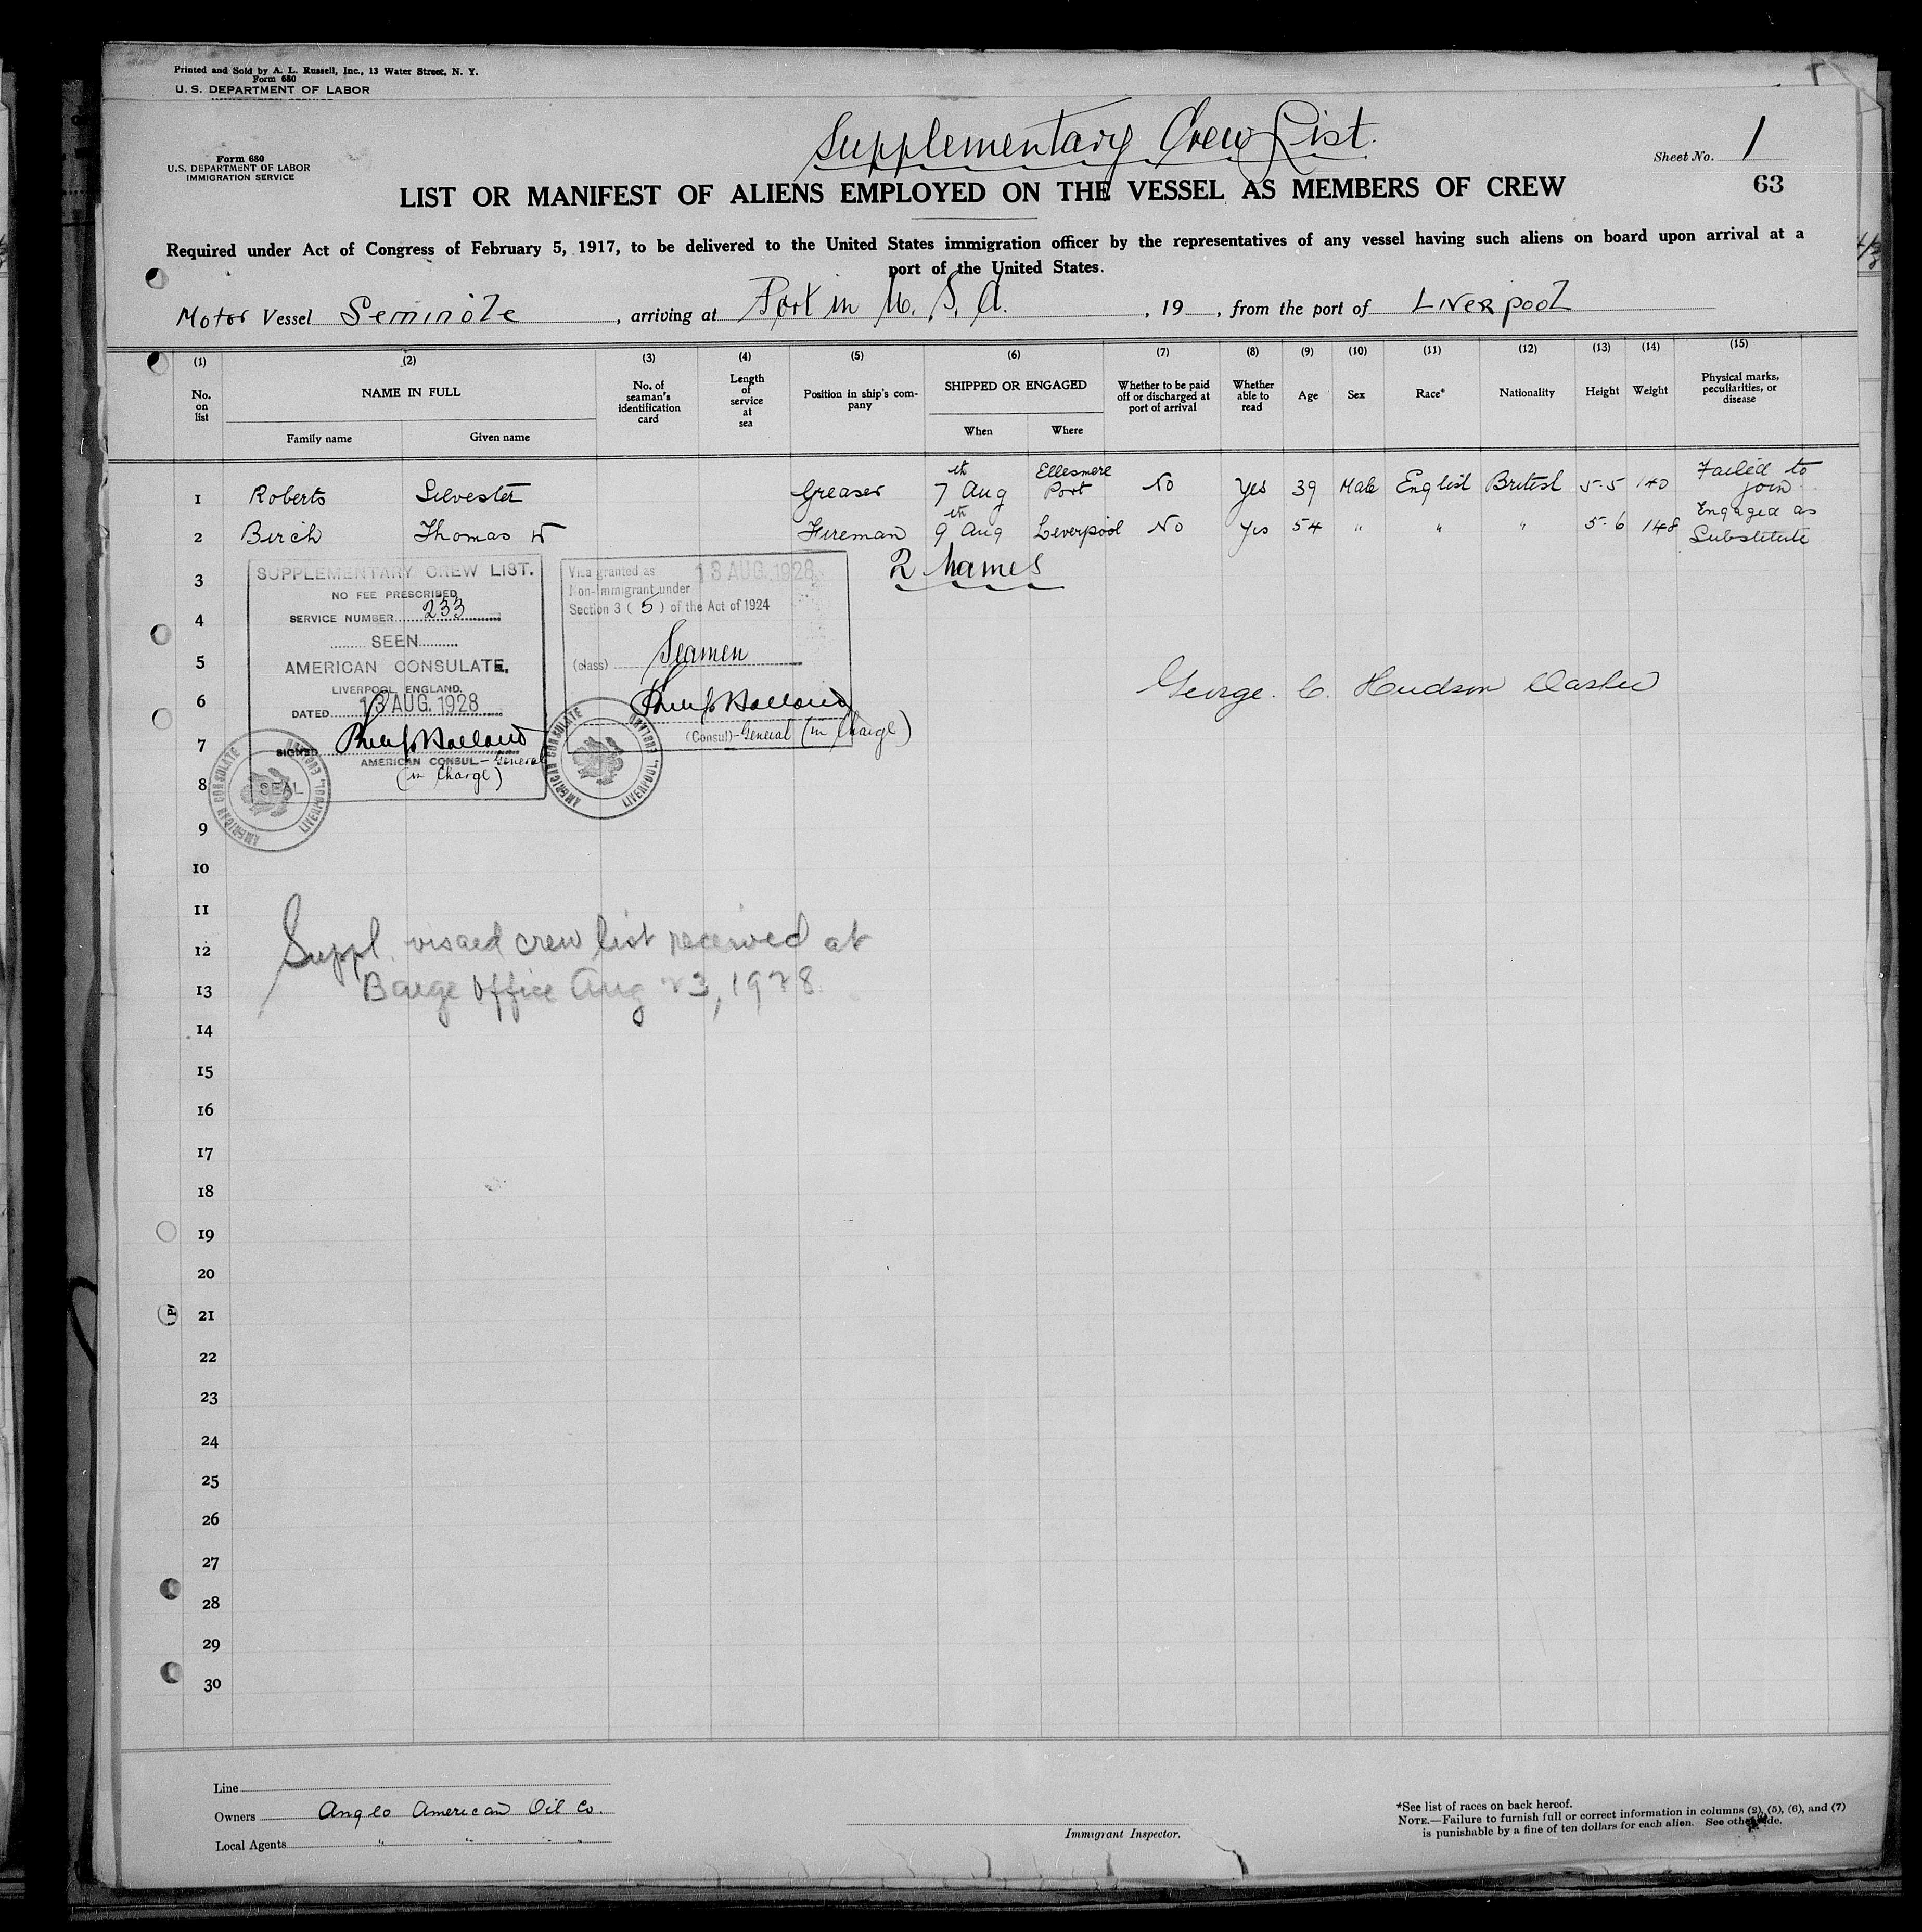 Printed and Sold by A. L. Russell, Inc., 13 Water Street, N. Y.
Form 680
U. S. DEPARTMENT OF LABOR
Supplementary Crew List.
Form 680
U. S. DEPARTMENT OF LABOR
IMMIGRATION SERVICE
Sheet No. 1
LIST OR MANIFEST OF ALIENS EMPLOYED ON THE VESSEL AS MEMBERS OF CREW
63
Required under Act of Congress of February 5, 1917, to be delivered to the United States immigration officer by the representatives of any vessel having such aliens on board upon arrival at a
port of the United States.
Motor Vessel Seminole, arriving at Port in U. S. A., 19 , from the port of Liverpool
(1) (2) (3) (4) (5) (6) (7) (8) (9) (10) (11) (12) (13) (14) (15)
No. on list
NAME IN FULL
Family name
Given name
No. of seaman's identification card
Length of service at sea
Position in ship's company
SHIPPED OR ENGAGED
When
Where
Whether to be paid off or discharged at port of arrival
Whether able to read
Age
Sex
Race*
Nationality
Height
Weight
Physical marks, peculiarities, or disease
1 Roberts Silvester Greaser 7th Aug Ellesmere Port No Yes 39 Male English British 5.5 140 Failed to join.
2 Birch Thomas W Fireman 9th Aug Liverpool No Yes 54 " " " 5.6 148 Engaged as Substitute
3
2 Names
4
5
6
7
8
9
10
11
12
13
14
15
16
17
18
19
20
21
22
23
24
25
26
27
28
29
30
SUPPLEMENTARY CREW LIST.
NO FEE PRESCRIBED
SERVICE NUMBER 233
SEEN
AMERICAN CONSULATE,
LIVERPOOL, ENGLAND.
DATED 13 AUG. 1928
SIGNED Philip Holland
AMERICAN CONSUL-General
(in Charge)
SEAL
AMERICAN CONSULATE LIVERPOOL, ENGLAND
Visa granted as 13 AUG. 1928
Non-Immigrant under
Section 3 (5) of the Act of 1924
(class) Seamen
Philip Holland
(Consul)-General (in Charge)
AMERICAN CONSULATE LIVERPOOL, ENGLAND
George. C. Hudson Master
Suppl. visaed crew list received at
Barge Office Aug 23, 1928
Line
Owners Anglo American Oil Co.
Local Agents " " " "
Immigrant Inspector.
*See list of races on back hereof.
NOTE.—Failure to furnish full or correct information in columns (2), (5), (6), and (7)
is punishable by a fine of ten dollars for each alien. See other side.